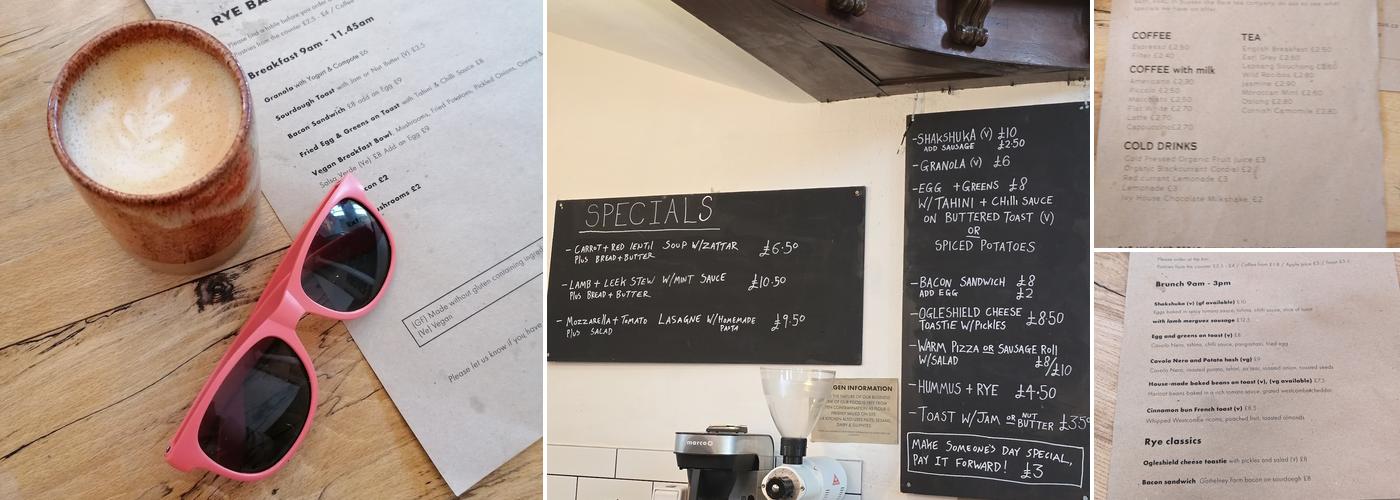 RYE BA
Find a table before you order a
Pastries from the counter £2.5 - £4 / Coffee
Breakfast 9am - 11.45am
Granola with Yogurt & Compote £6
Sourdough Toast with Jam or Nut Butter (V) £3.5
Bacon Sandwich £8 add an Egg £9
Fried Egg & Greens on Toast with Tahini & Chilli Sauce £8
Vegan Breakfast Bowl, Mushrooms, Fried Potatoes, Pickled Onions, Greens &
Salsa Verde (Ve) £8 Add an Egg £9
con £2
shrooms £2
(GF) Made without gluten containing ingre
(Ve) Vegan
Please let us know if you have
SPECIALS
- CARROT + RED LENTIL SOUP W/ZATTAR £6.50
PLUS BREAD + BUTTER
- LAMB + LEEK STEW W/MINT SAUCE £10.50
PLUS BREAD + BUTTER
- MOZZARELLA + TOMATO LASAGNE W/HOMEMADE PASTA £9.50
PLUS SALAD
- SHAKSHUKA (V) £10
ADD SAUSAGE £2.50
- GRANOLA (V) £6
- EGG + GREENS £8
W/ TAHINI + CHILLI SAUCE
ON BUTTERED TOAST (V)
OR
SPICED POTATOES
- BACON SANDWICH £8
ADD EGG £2
- OGLESHIELD CHEESE
TOASTIE W/PICKLES £8.50
- WARM PIZZA OR SAUSAGE ROLL
W/SALAD £8/£10
- HUMMUS + RYE £4.50
- TOAST W/JAM OR NUT BUTTER £3.50
MAKE SOMEONE'S DAY SPECIAL,
PAY IT FORWARD! £3
GEN INFORMATION
marco
COFFEE
Espresso £2.50
Filter £2.40
COFFEE with milk
Americano £2.90
Piccolo £2.50
Macchiato £2.50
Flat White £2.70
Latte £2.70
Cappuccino £2.70
TEA
English Breakfast £2.50
Earl Grey £2.50
Lapsang Souchong £2.80
Wild Rooibos £2.80
Jasmine £2.90
Moroccan Mint £2.60
Oolong £2.80
Cornish Camomile £2.80
COLD DRINKS
Cold Pressed Organic Fruit Juice £3
Organic Blackcurrant Cordial £2
Red currant Lemonade £3
Lemonade £3
Ivy House Chocolate Milkshake £2
Please order at the bar
Pastries from the counter £2.5 - £4 / Coffee from £1.8 / Apple juice £3 / Toast £3.5
Brunch 9am - 3pm
Shakshuka (v) (gf available) £10
Eggs baked in spicy tomato sauce, tahini, chilli sauce, slice of toast
with lamb merguez sausage £12.5
Egg and greens on toast (v) £8
Cavolo Nero, tahini, chilli sauce, pangrattato, fried egg
Cavolo Nero and Potato hash (vg) £9
Cavolo Nero, roasted potato, tahini, za'atar, roasted onion, toasted seeds
House-made baked beans on toast (v), (vg available) £7.5
Haricot beans baked in a rich tomato sauce, grated westcombe cheddar
Cinnamon bun French toast (v) £8.5
Whipped Westcombe ricotta, poached fruit, toasted almonds
Rye classics
Ogleshield cheese toastie with pickles and salad (v) £8
Bacon sandwich Gothelney Farm bacon on sourdough £8